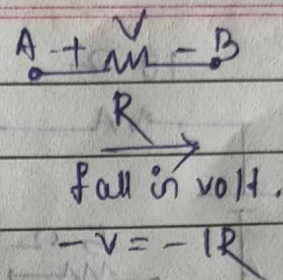 V
A + - B
R
fall in volt.
- V = - IR